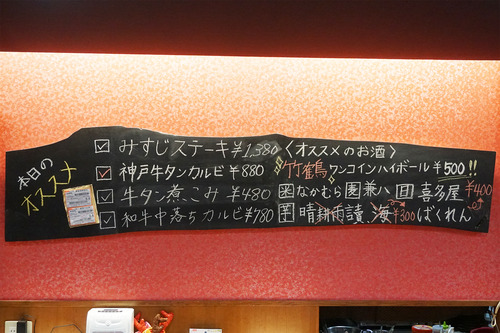 本日の
オススメ
みすじステーキ ¥1,380
神戸牛タンカルビ ¥880
牛タン煮こみ ¥480
和牛中落ちカルビ ¥780
〈オススメのお酒〉
竹鶴 ワンコインハイボール ¥500!!
なかむら 兼八 喜多屋 ¥400
晴耕雨読 海 ¥300 ばくれん